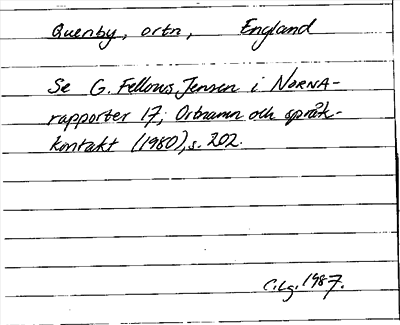 Quenby, ortn, England
Se G. Fellows Jensen i NORNA-
rapporter 17; Ortnamn och språk-
kontakt (1980), s. 202.
C.Lg. 1987.